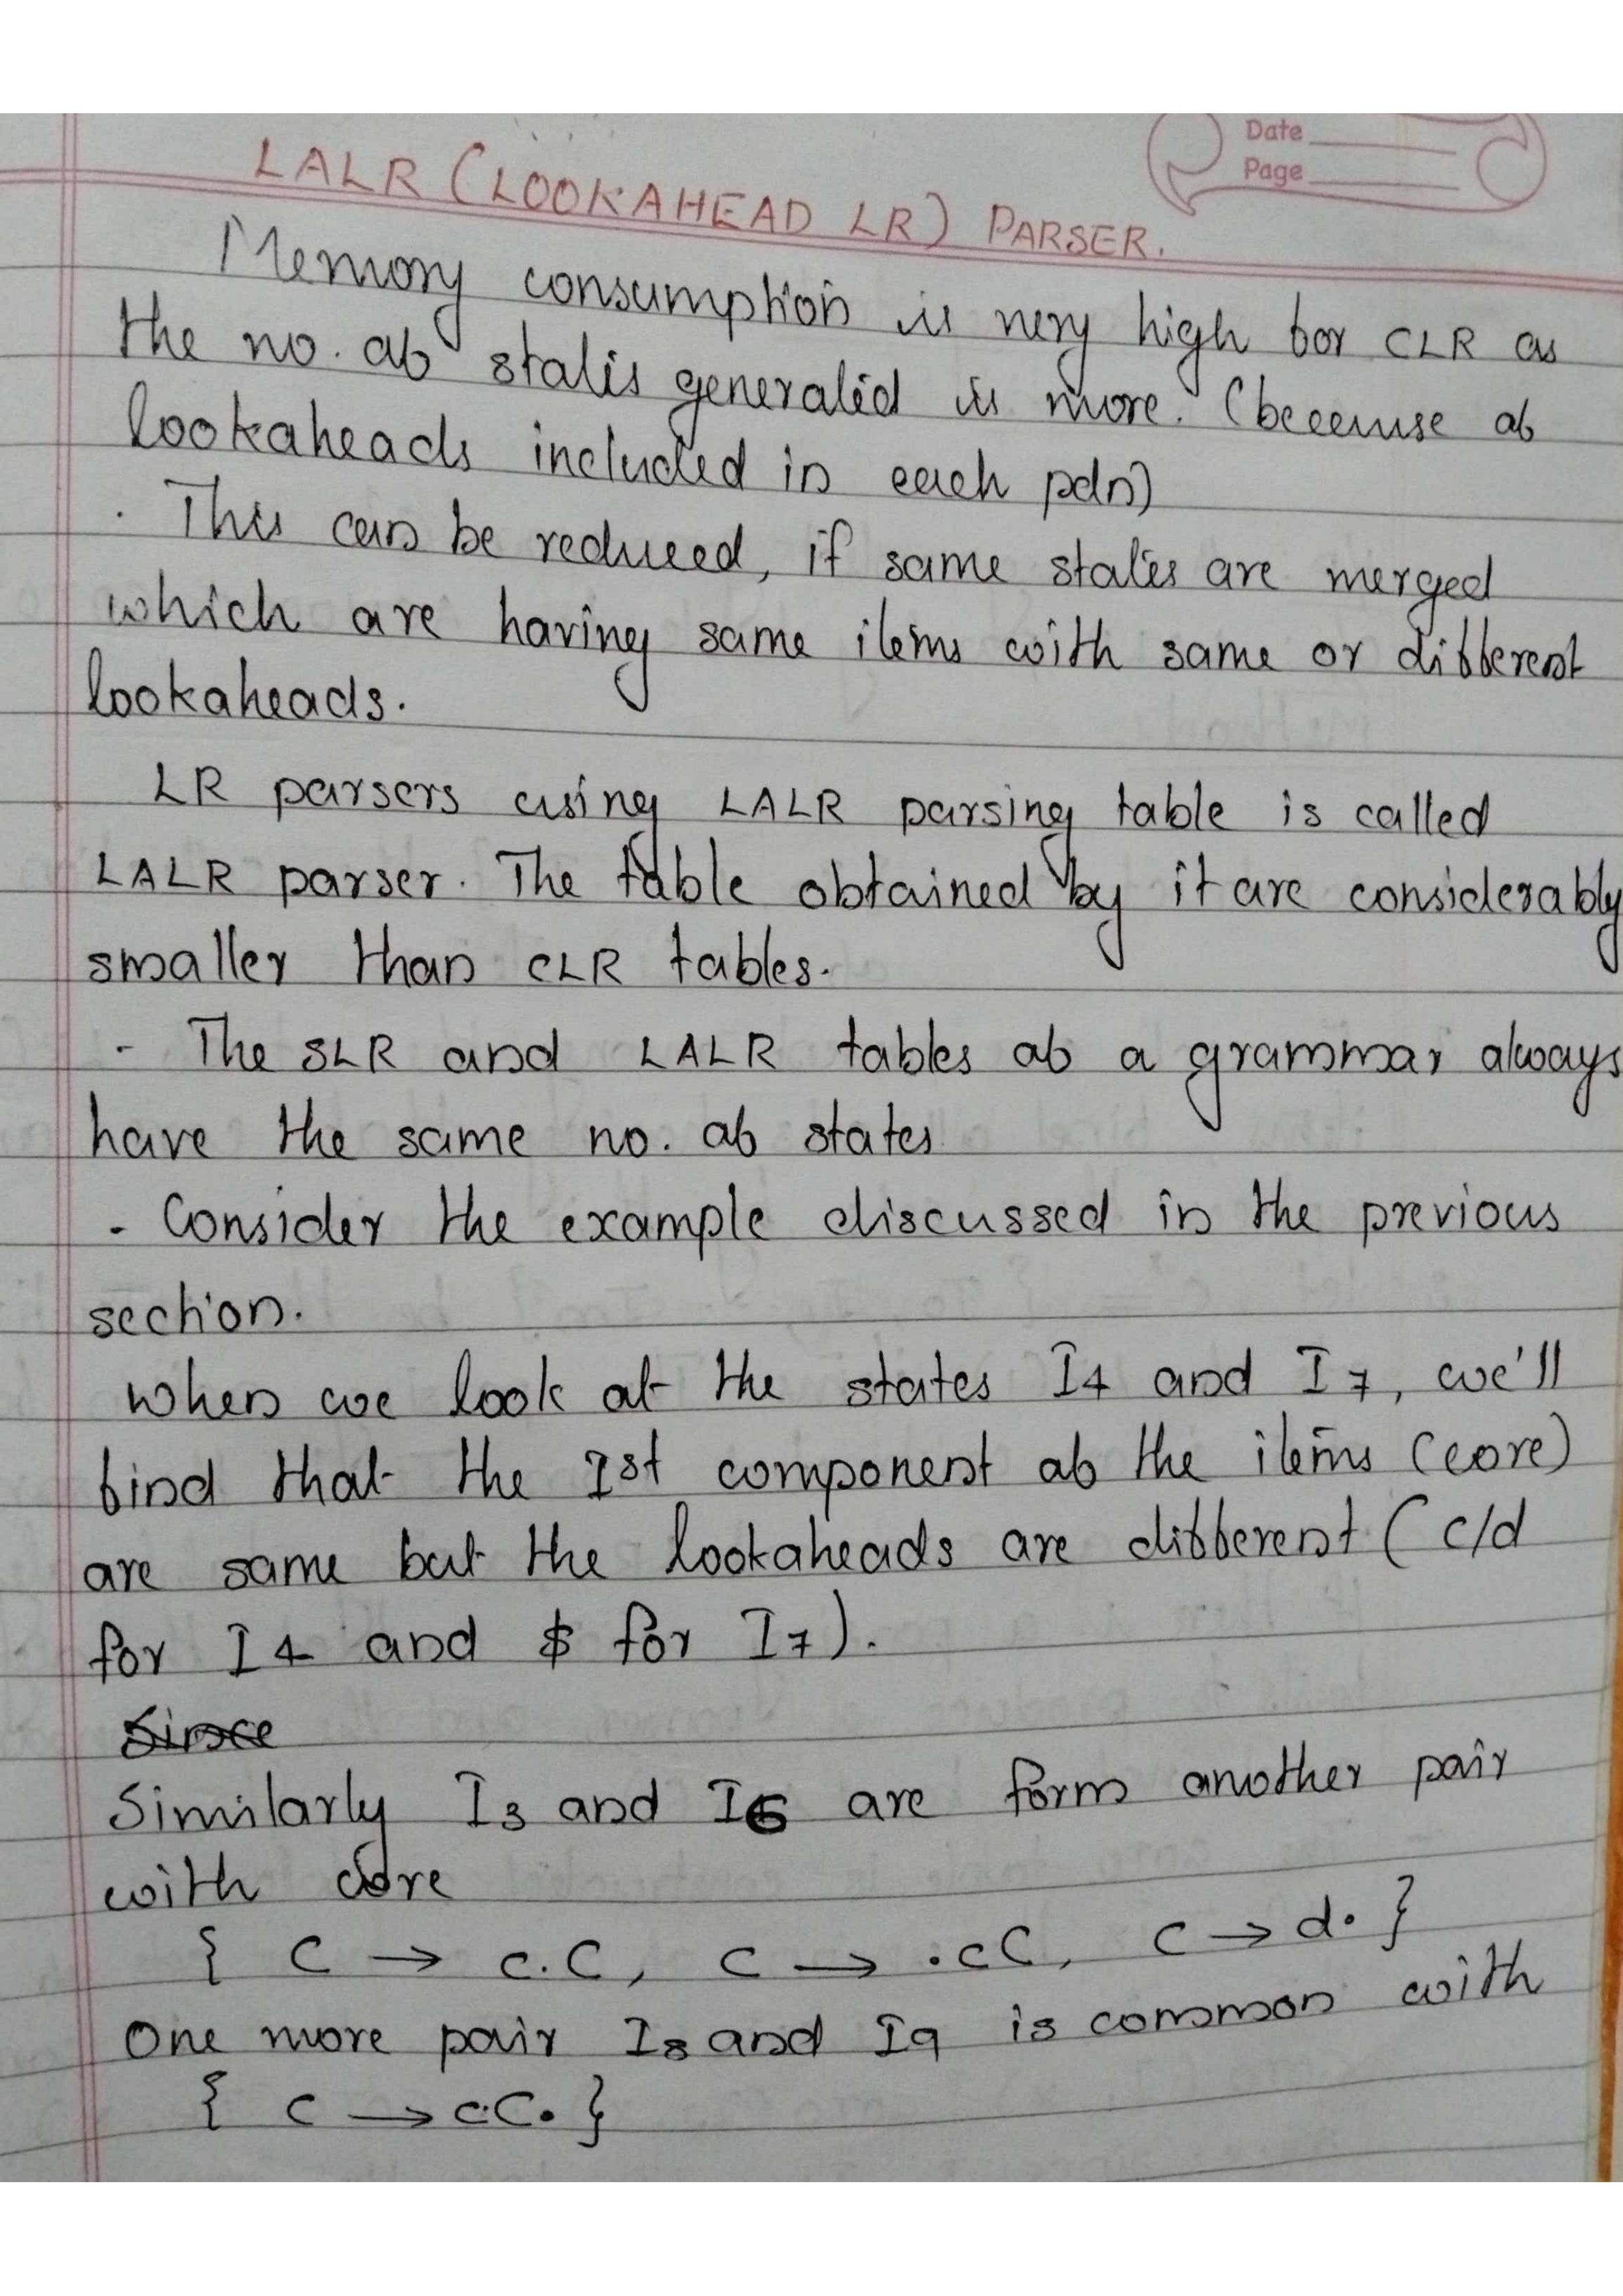 Date
Page
LALR (LOOKAHEAD LR) PARSER.
Memory consumption is very high for CLR as
the no. of states generated is more. (because of
lookaheads included in each pdn)
. This can be reduced, if same states are merged
which are having same items with same or different
lookaheads.
LR parsers using LALR parsing table is called
LALR parser. The table obtained by it are considerably
smaller than CLR tables.
- The SLR and LALR tables of a grammar always
have the same no. of states
- Consider the example discussed in the previous
section.
When we look at the states I4 and I7, we'll
find that the 1st component of the items (core)
are same but the lookaheads are different (c/d
for I4 and $ for I7).
Since
Similarly I3 and I6 are form another pair
with core
{ C → c.C, C → .cC, C → d. }
One more pair I8 and I9 is common with
{ C → cC. }